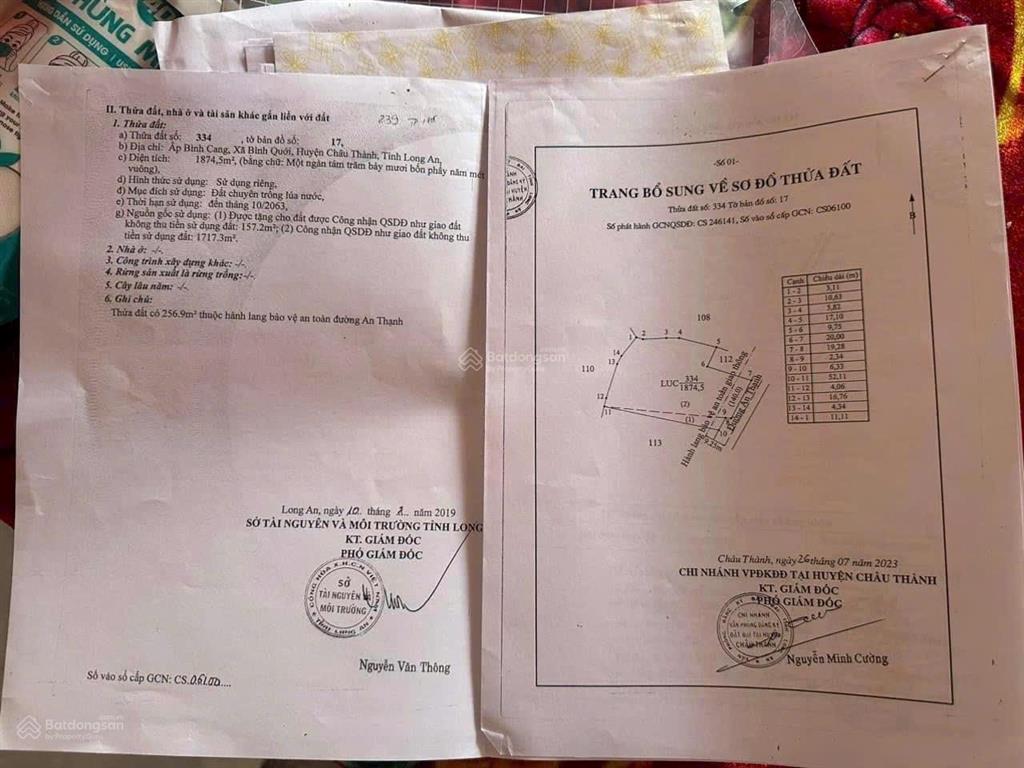 HƯỚNG DẪN SỬ DỤNG
II. Thửa đất, nhà ở và tài sản khác gắn liền với đất
1. Thửa đất:
a) Thửa đất số: 334 , tờ bản đồ số: 17,
b) Địa chỉ: Ấp Bình Cang, Xã Bình Quới, Huyện Châu Thành, Tỉnh Long An,
c) Diện tích: 1874,5m², (bằng chữ: Một ngàn tám trăm bảy mươi bốn phẩy năm mét
vuông),
d) Hình thức sử dụng: Sử dụng riêng,
đ) Mục đích sử dụng: Đất chuyên trồng lúa nước,
e) Thời hạn sử dụng: đến tháng 10/2063,
g) Nguồn gốc sử dụng: (1) Được tặng cho đất được Công nhận QSDĐ như giao đất
không thu tiền sử dụng đất: 157.2m²; (2) Công nhận QSDĐ như giao đất không thu
tiền sử dụng đất: 1717.3m².
2. Nhà ở: -/-.
3. Công trình xây dựng khác: -/-.
4. Rừng sản xuất là rừng trồng: -/-.
5. Cây lâu năm: -/-.
6. Ghi chú:
Thửa đất có 256.9m² thuộc hành lang bảo vệ an toàn đường An Thạnh
Long An, ngày 10 tháng 2 năm 2019
SỞ TÀI NGUYÊN VÀ MÔI TRƯỜNG TỈNH LONG
KT. GIÁM ĐỐC
PHÓ GIÁM ĐỐC
CỘNG HÒA X.H.C.N VIỆT NAM
SỞ
TÀI NGUYÊN
MÔI TRƯỜNG
TỈNH LONG AN
Nguyễn Văn Thông
Số vào sổ cấp GCN: CS.06100....
-Số 01-
TRANG BỔ SUNG VỀ SƠ ĐỒ THỬA ĐẤT
Thửa đất số: 334 Tờ bản đồ số: 17
Số phát hành GCNQSDĐ: CS 246141, Số vào sổ cấp GCN: CS06100
B
Cạnh Chiều dài (m)
1 - 2 5,11
2 - 3 10,63
3 - 4 5,82
4 - 5 17,10
5 - 6 9,75
6 - 7 20,00
7 - 8 19,28
8 - 9 2,34
9 - 10 6,33
10 - 11 52,11
11 - 12 4,06
12 - 13 16,76
13 - 14 4,54
14 - 1 11,11
108
1 2 3 4 5
14
13
110
6
112
7
LUC 334
1874,5
12
11
(2)
(1)
9
8
10
113
9.25m
(140.0)
Hành lang bảo vệ an toàn giao thông
Đường An Thạnh
Châu Thành, ngày 26 tháng 07 năm 2023
CHI NHÁNH VPĐKĐĐ TẠI HUYỆN CHÂU THÀNH
KT. GIÁM ĐỐC
PHÓ GIÁM ĐỐC
CHI NHÁNH
VĂN PHÒNG ĐĂNG KÝ
ĐẤT ĐAI TẠI HUYỆN
CHÂU THÀNH
Nguyễn Minh Cường
Batdongsan
Batdongsan
by PropertyGuru